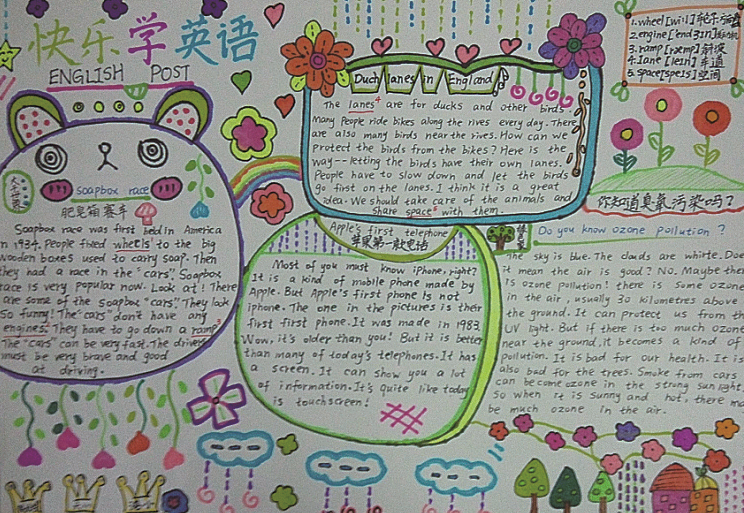 快乐学英语
ENGLISH POST
soapbox race
肥皂箱赛车
Soapbox race was first held in America
in 1934. People fixed wheels to the big
wooden boxes used to carry soap. Then
they had a race in the "cars". Soapbox
race is very popular now. Look at! There
are some of the soapbox "cars". They look
so funny! The "cars" don't have any
engines. They have to go down a ramp³
The "cars" can be very fast. The drivers
must be very brave and good
at driving.
Duch lanes in England
The lanes⁴ are for ducks and other birds
Many People ride bikes along the rives every day. There
are also many birds near the rives. How can we
protect the birds from the bikes? Here is the
way -- letting the birds have their own lanes.
People have to slow down and let the birds
go first on the lanes. I think it is a great
idea. We should take care of the animals and
share space⁵ with them.
Apple's first telephone
苹果第一款电话
Most of you must know iphone, right?
It is a kind of mobile phone made by
Apple. But Apple's first phone is not
iphone. The one in the pictures is their
first first phone. It was made in 1983.
Wow, it's older than you! But it is better
than many of today's telephones. It has
a screen. It can show you a lot
of information. It's Quite like today
is touchscreen!
1. wheel [wi:l]
2. engine
3. ramp [ræmp] 斜坡
4. lane [lein] 车道
5. space [speis] 空间
你知道臭氧污染吗？
Do you know ozone pollution ?
The sky is blue. The clouds are whirte. Does
it mean the air is good? No. Maybe there
is ozone pollution! there is some ozone
in the air, usually 30 kilometres above
the ground. It can protect us from the
UV light. But if there is too much ozone
near the ground, it becomes a kind of
pollution. It is bad for our health. It is
also bad for the trees. Smoke from cars
can become ozone in the strong sunlight.
So when it is sunny and hot, there may
be much ozone in the air.